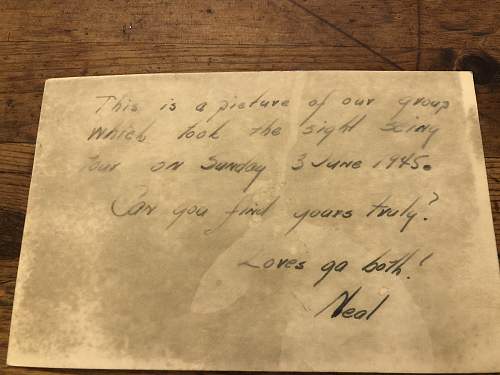 This is a picture of our group
which took the sight seing
tour on Sunday 3 June 1945.
Can you find yours truly?
Loves ya both!
Neal